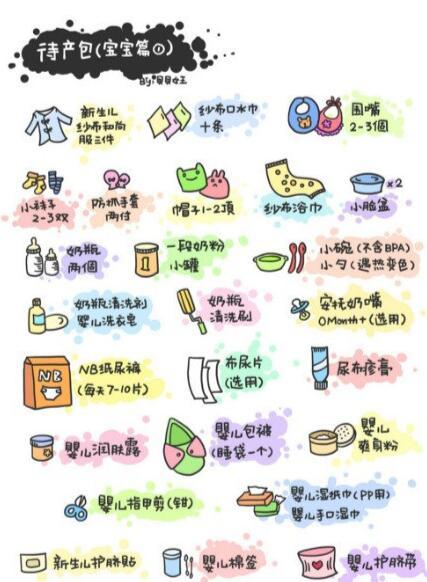 待产包(宝宝篇①)
By:贝贝女王
新生儿
纱布和尚
服三件
纱布口水巾
十条
围嘴
2-3個
小袜子
2-3双
防抓手套
两付
帽子1-2顶
纱布浴巾
×2
小脸盆
奶瓶
两個
1
一段奶粉
小罐
小碗(不含BPA)
小勺(遇热变色)
奶瓶清洗剂
婴儿洗衣皂
奶瓶
清洗刷
安抚奶嘴
0Month+(选用)
NB
NB纸尿裤
(每天7-10片)
布尿片
(选用)
尿布疹膏
婴儿润肤露
婴儿包被
(睡袋一个)
婴儿
爽身粉
婴儿指甲剪(钳)
婴儿湿纸巾(PP用)
婴儿手口湿巾
新生儿护脐贴
婴儿棉签
婴儿护脐带